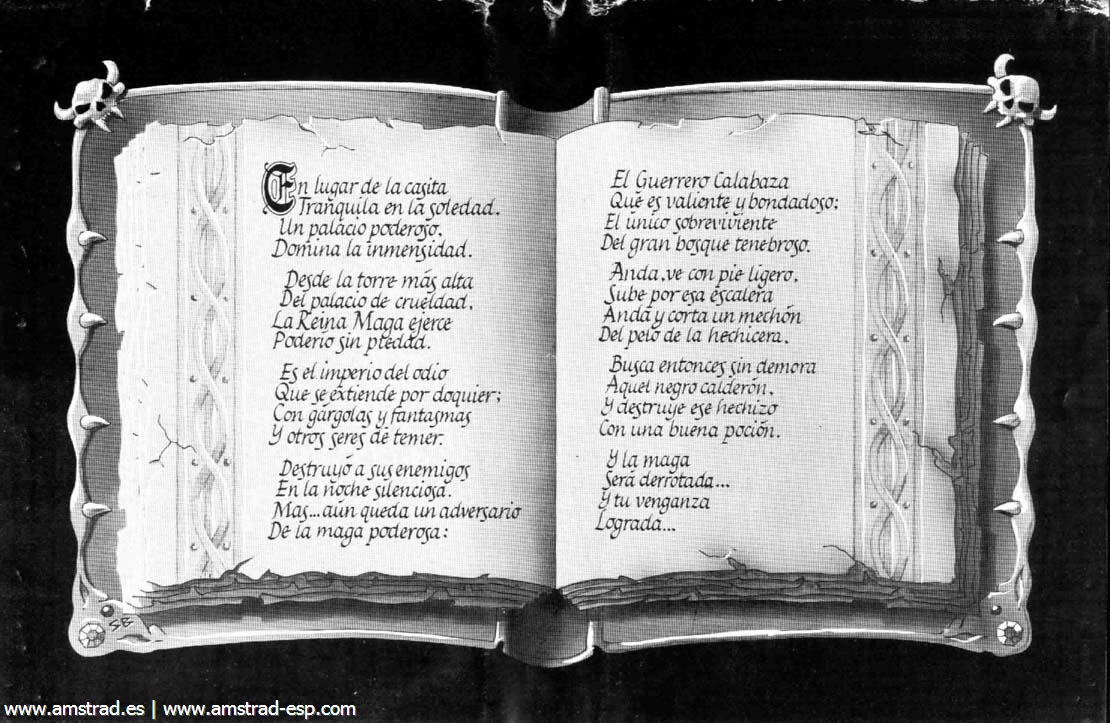 En lugar de la casita
Tranquila en la soledad,
Un palacio poderoso,
Domina la inmensidad.
Desde la torre más alta
Del palacio de crueldad,
La Reina Maga ejerce
Poderio sin piedad.
Es el imperio del odio
Que se extiende por doquier;
Con gárgolas y fantasmas
Y otros seres de temer.
Destruyó a sus enemigos
En la noche silenciosa.
Mas...aún queda un adversario
De la maga poderosa:
El Guerrero Calabaza
Que es valiente y bondadoso;
El único sobreviviente
Del gran bosque tenebroso.
Anda, ve con pie ligero,
Sube por esa escalera
Anda y corta un mechón
Del pelo de la hechicera.
Busca entonces sin demora
Aquel negro calderón,
Y destruye ese hechizo
Con una buena poción.
Y la maga
Será derrotada...
Y tu venganza
Lograda...
SB
www.amstrad.es | www.amstrad-esp.com